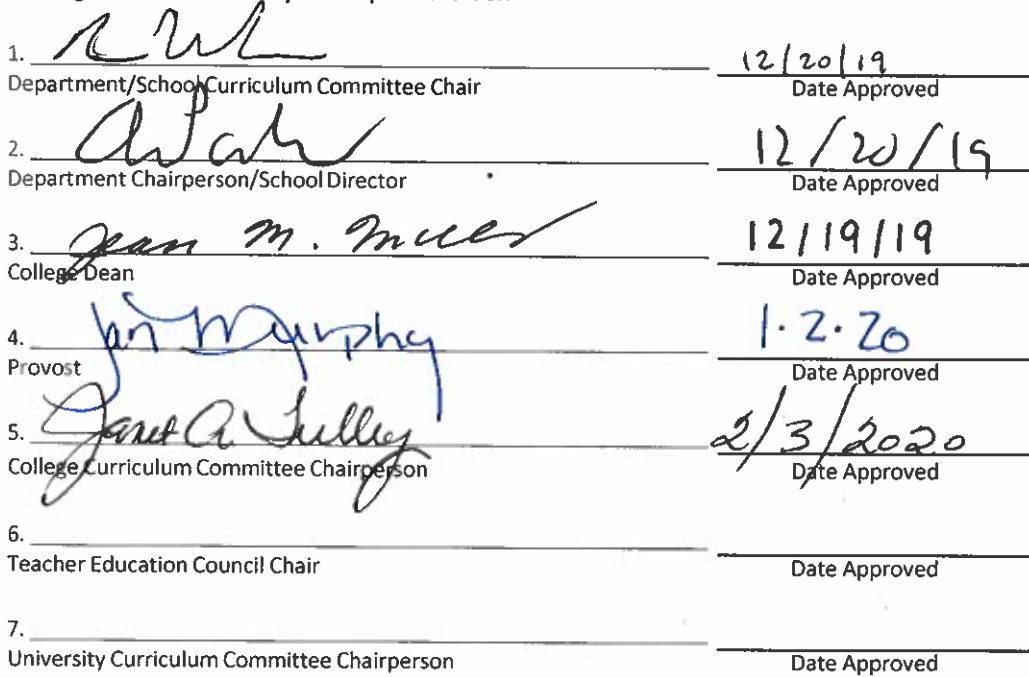 1.
12/20/19
Department/School Curriculum Committee Chair Date Approved
2.
12/20/19
Department Chairperson/School Director Date Approved
3. Jean M. Miller 12/19/19
College Dean Date Approved
4. Jan Murphy 1·2·20
Provost Date Approved
5. Janet A 2/3/2020
College Curriculum Committee Chairperson Date Approved
6.
Teacher Education Council Chair Date Approved
7.
University Curriculum Committee Chairperson Date Approved